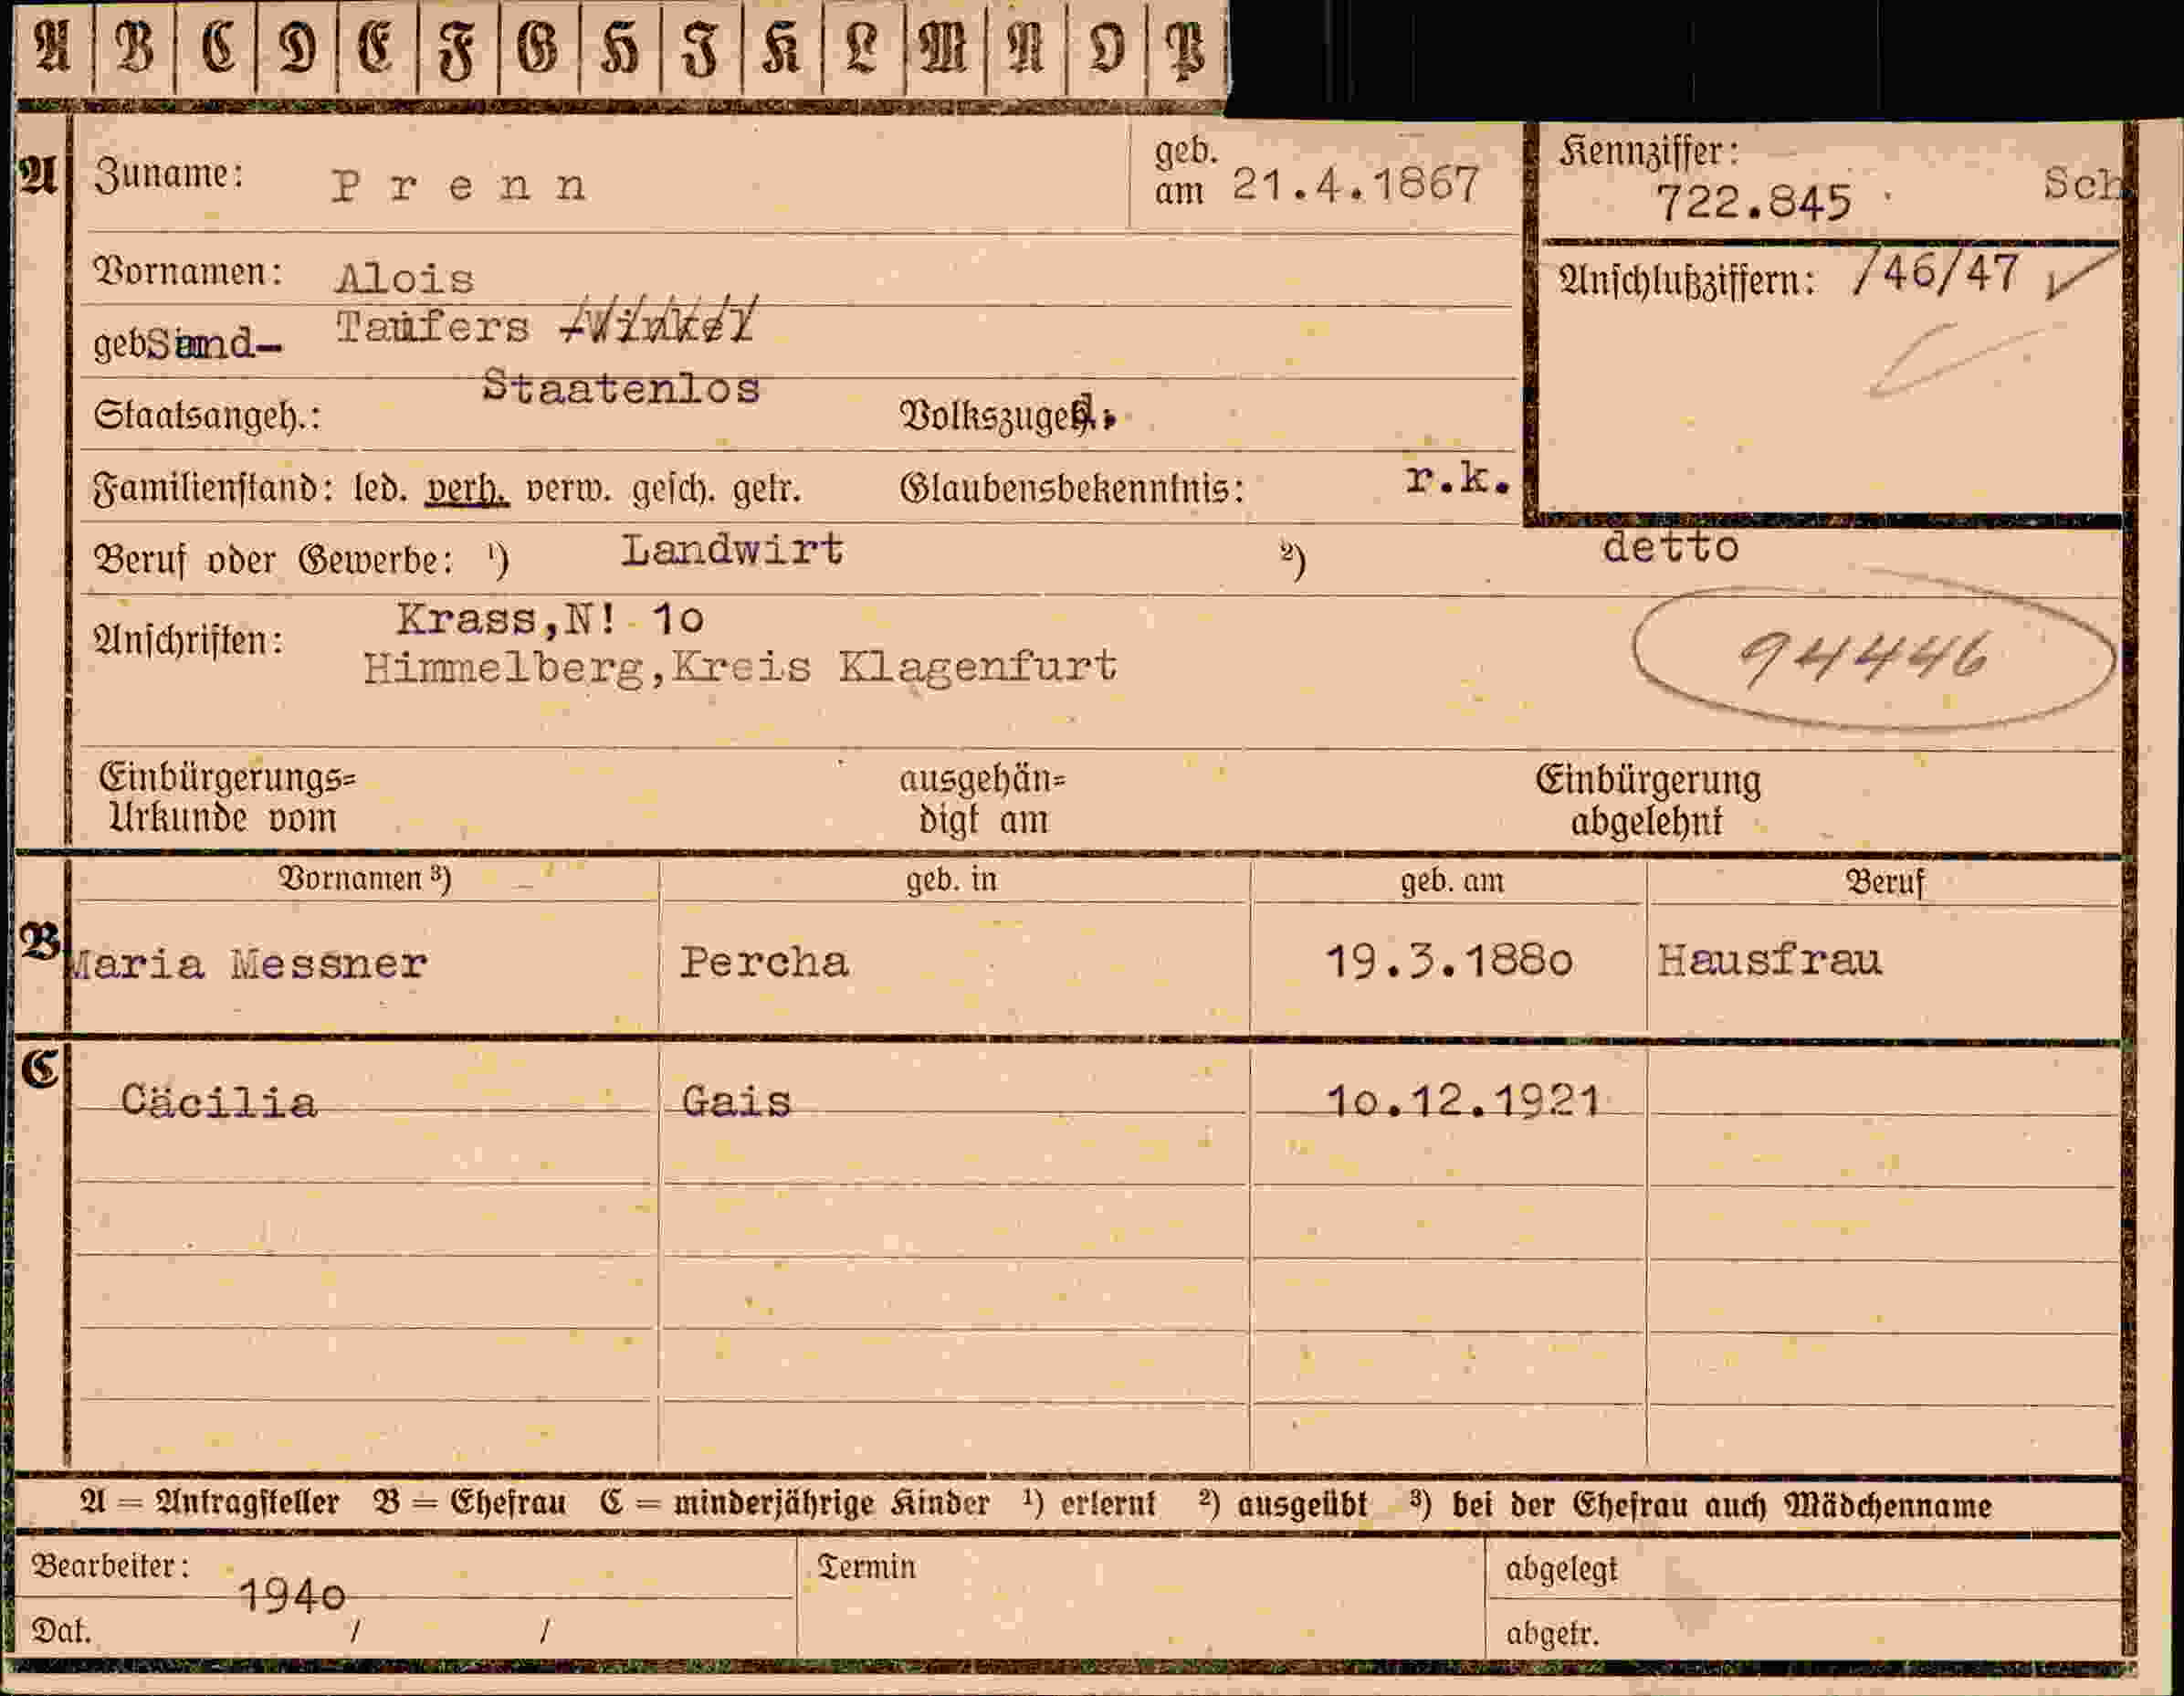 A B C D E F G H I K L M N O P
A Zuname: Prenn geb. am 21.4.1867 Kennziffer: 722.845 Sch
Vornamen: Alois Anschlußziffern: /46/47
geb Sand- Taufers
Staatsangeh.: Staatenlos Volkszugeh.:
Familienstand: led. verh. verw. gesch. getr. Glaubensbekenntnis: r.k.
Beruf oder Gewerbe: ¹) Landwirt ²) detto
Anschriften: Krass,N! 1o
Himmelberg,Kreis Klagenfurt 94446
Einbürgerungs= ausgehän= Einbürgerung
Urkunde vom digt am abgelehnt
Vornamen ³) geb. in geb. am Beruf
B Maria Messner Percha 19.3.188o Hausfrau
C Cäcilia Gais 1o.12.1921
A = Antragsteller B = Ehefrau C = minderjährige Kinder ¹) erlernt ²) ausgeübt ³) bei der Ehefrau auch Mädchenname
Bearbeiter: Termin abgelegt
194o
Dat. / / abgetr.